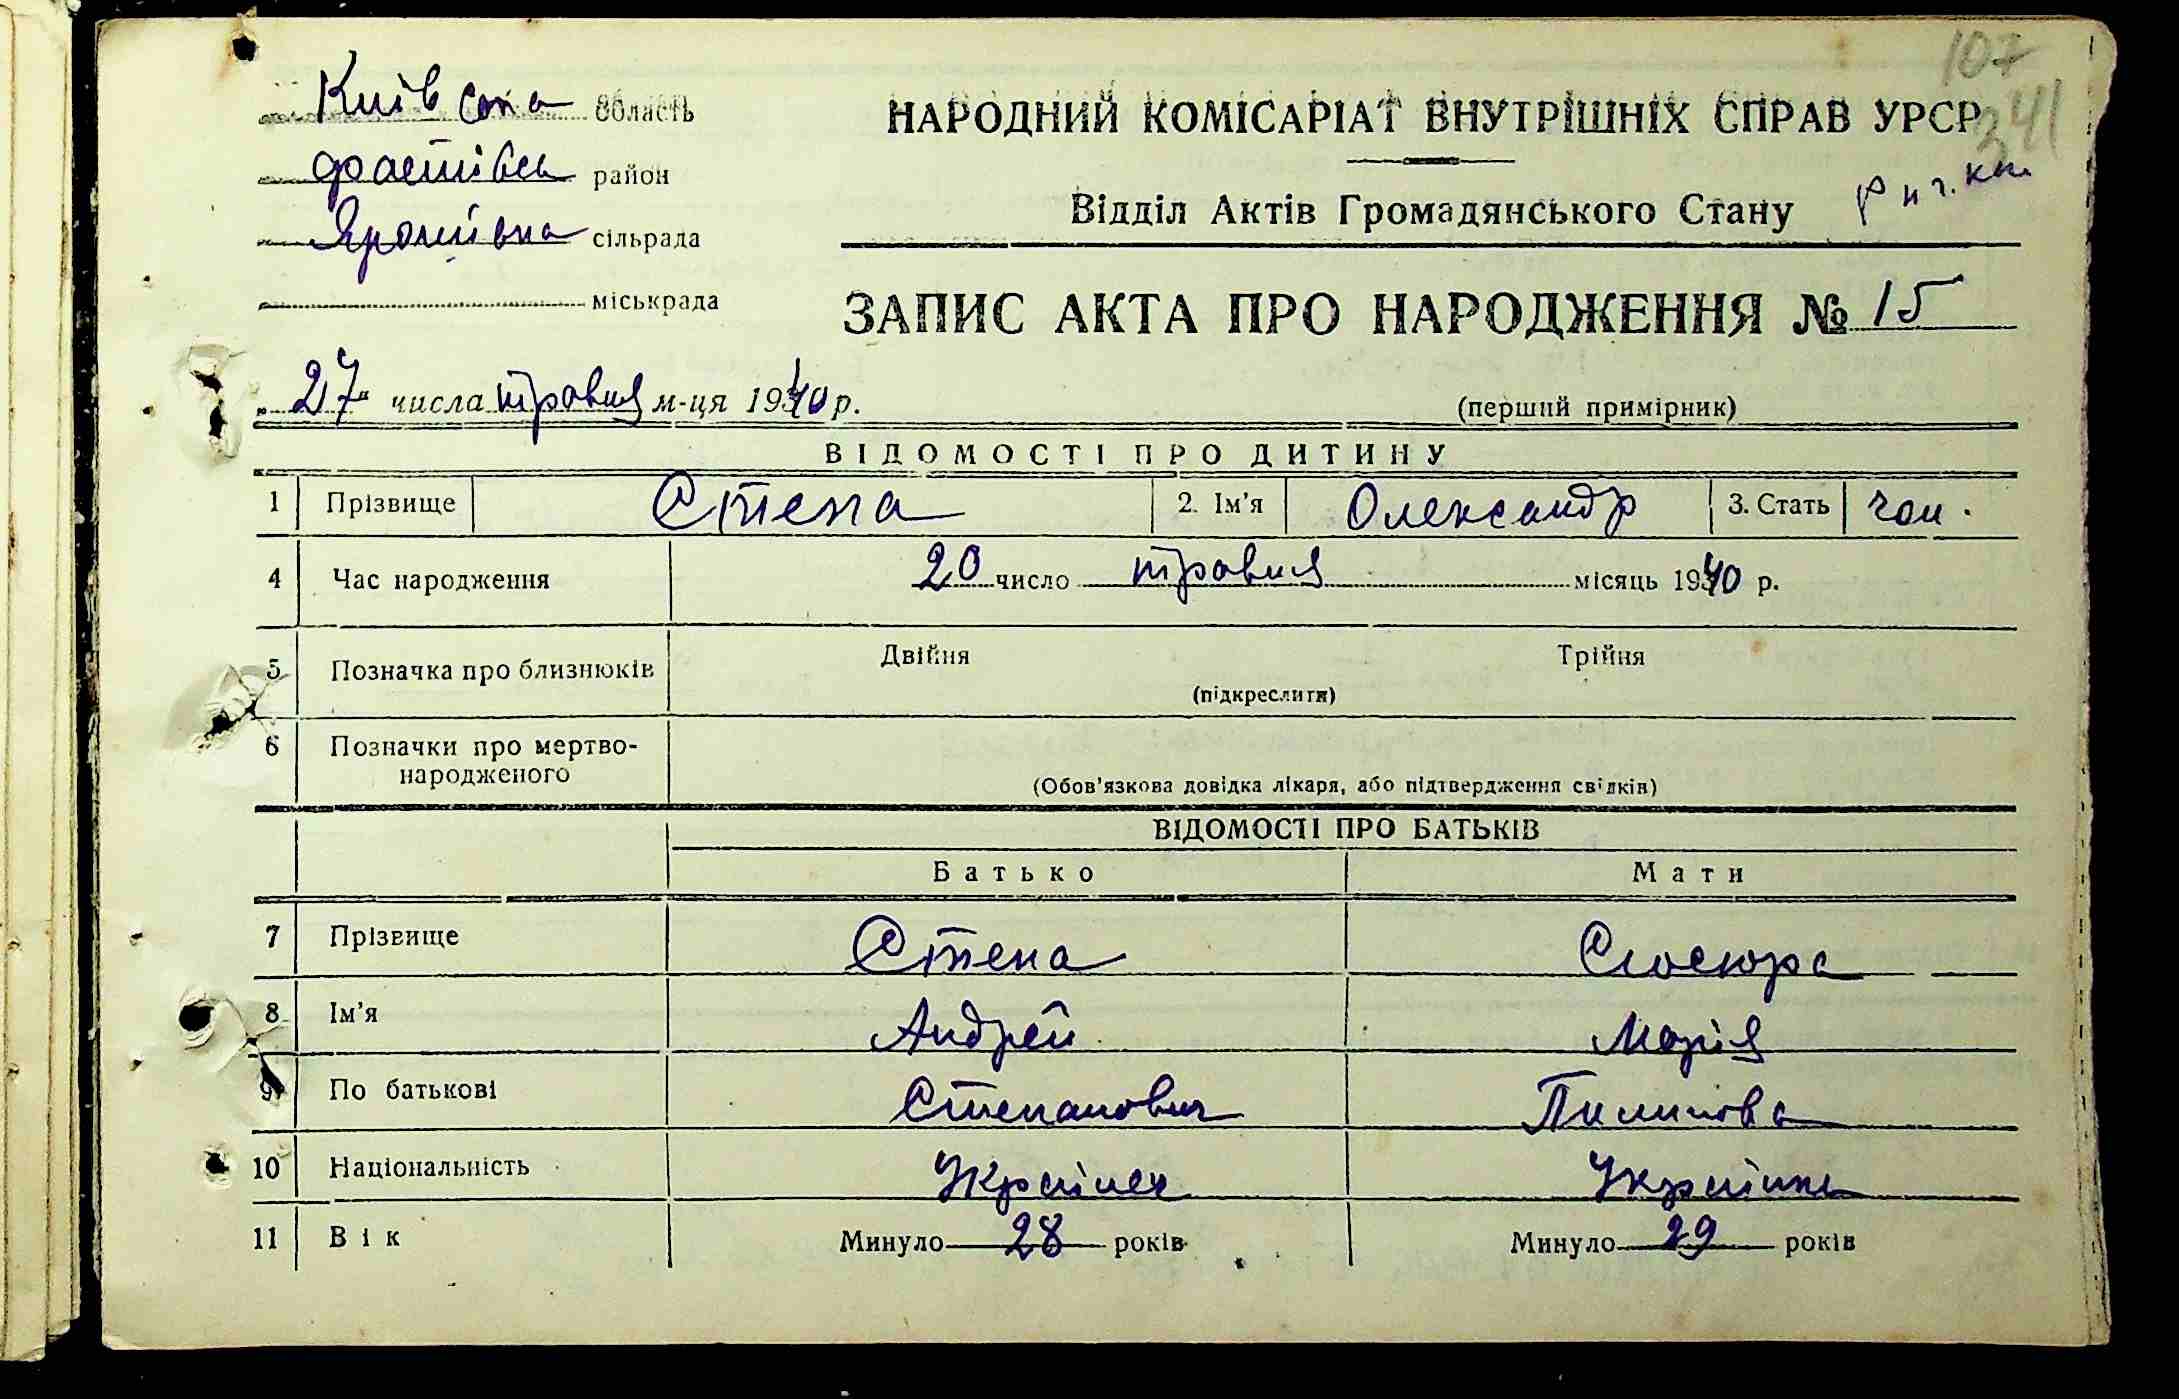 107
341
Київська область
НАРОДНИЙ КОМІСАРІАТ ВНУТРІШНІХ СПРАВ УРСР
Фастівськ район
Відділ Актів Громадянського Стану
Яромівка сільрада
міськрада
ЗАПИС АКТА ПРО НАРОДЖЕННЯ № 15
„27“ числа травня м-ця 1940 р.
(перший примірник)
ВІДОМОСТІ ПРО ДИТИНУ
1 Прізвище Степа 2. Ім'я Олександр 3. Стать чол.
4 Час народження 20 число травня місяць 1940 р.
5 Позначка про близнюків Двійня Трійня
(підкреслити)
6 Позначки про мертво-
народженого
(Обов'язкова довідка лікаря, або підтвердження свідків)
ВІДОМОСТІ ПРО БАТЬКІВ
Батько Мати
7 Прізвище Степа Сюсюра
8 Ім'я Андрей Марія
9 По батькові Степанович Пилипова
10 Національність Українец Українка
11 Вік Минуло 28 років Минуло 29 років